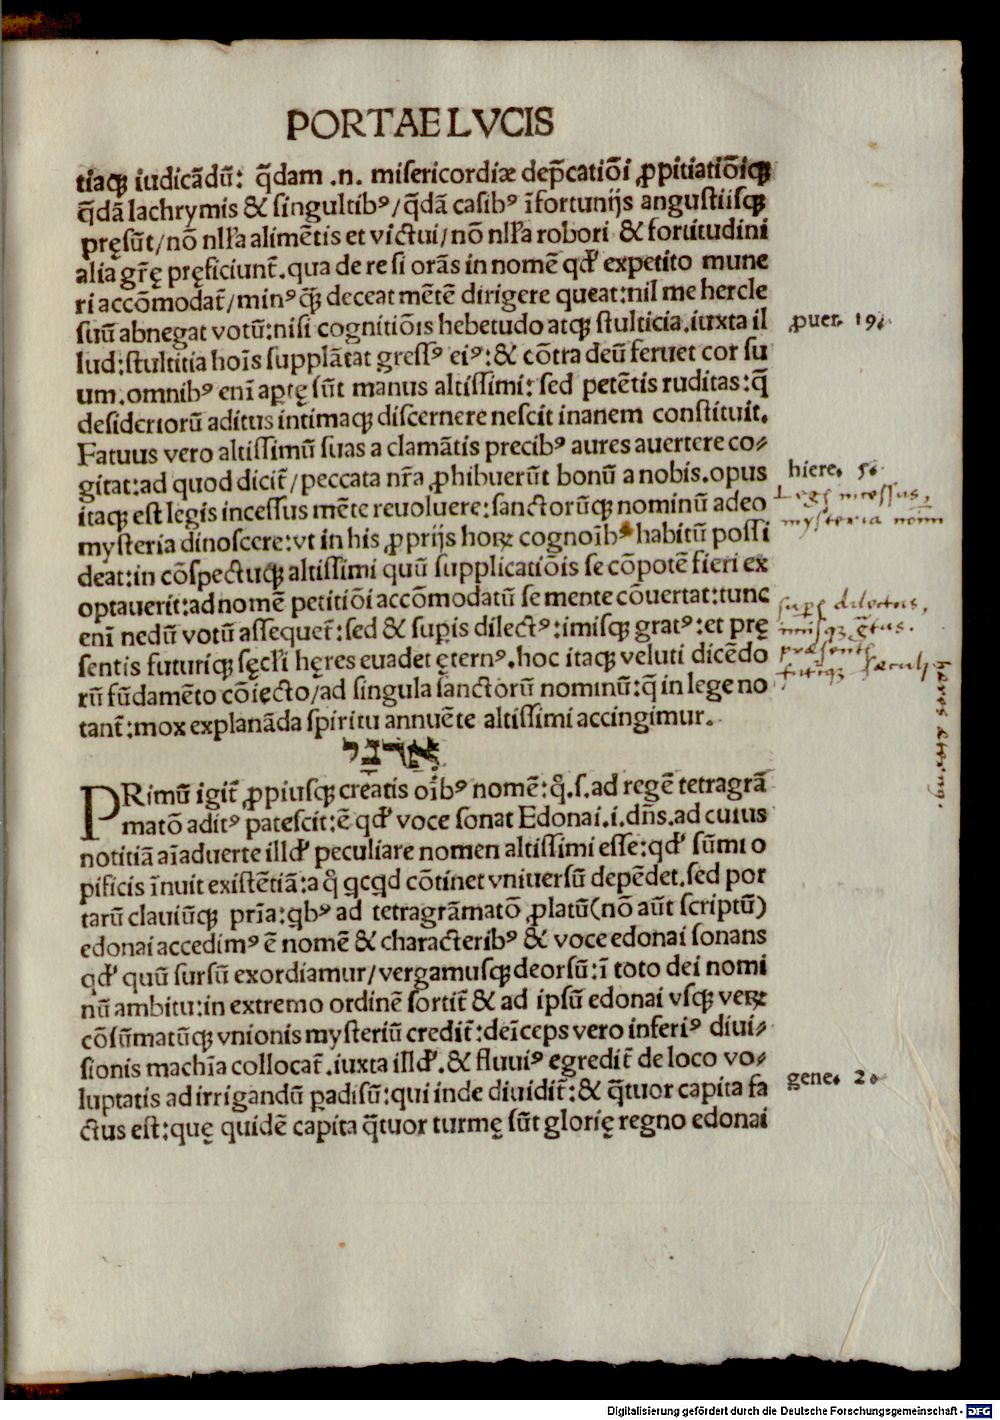 PORTAE LVCIS
tiaqꝫ iudicãdũ: q̃dam .n. misericordiæ dep̃catiõi ꝓpitiatiõiqꝫ
q̃dã lachrymis & singultibꝰ/q̃dã casibꝰ ĩfortunijs angustiisqꝫ
pręsũt/nõ nłła alimẽtis et victui/nõ nłła robori & fortitudini
alia gr̃ę pręficiunt̃.qua de re si orãs in nomẽ qd̛ expetito mune
ri accõmodat̃/minꝰ q̃ꝫ deceat mẽtẽ dirigere queat:nil me hercle
suũ abnegat votũ:nisi cognitiõis hebetudo atqꝫ stulticia.iuxta il
lud:stultitia hoĩs supplãtat gressꝰ eiꝰ:& cõtra deũ feruet cor su
um.omnibꝰ enĩ aꝑtę sũt manus altissimi: sed petẽtis ruditas:q̃
desideriorũ aditus intimaqꝫ discernere nescit inanem constituit.
Fatuus vero altissimũ suas a clamãtis precibꝰ aures auertere co⸗
gitat:ad quod dicit̃/peccata nr̃a ꝓhibuerũt bonũ a nobis.opus
itaqꝫ est legis incessus mẽte reuoluere:sanctorũqꝫ nominũ adeo
mysteria dinoscere:vt in his ꝓprijs hoꝝ cognoĩbꝰ habitũ possi
deat:in cõspectuqꝫ altissimi quũ supplicatiõis se cõpotẽ fieri ex
optauerit:ad nomẽ petitiõi accõmodatũ se mente cõuertat:tunc
enĩ nedũ votũ assequet̃:sed & suꝑis dilectꝰ:imisqꝫ gratꝰ:et prę
sentis futuriqꝫ sęcłi hęres euadet ęternꝰ.hoc itaqꝫ veluti dicẽdo
rũ fũdamẽto cõiecto/ad singula sanctorũ nominũ:q̃ in lege no
tant̃:mox explanãda spiritu annuẽte altissimi accingimur.
אֲדֹנָי
PRimũ igit̃ ꝓpiusqꝫ creatis oĩbꝰ nomẽ:q̊.s.ad regẽ tetragrã
matõ aditꝰ patescit:ẽ qd̛ voce sonat Edonai.i.dñs.ad cuius
notitiã aĩaduerte illd̛ peculiare nomen altissimi esse:qd̛ sũmi o
pificis ĩnuit existẽtiã:a q̊ ꝗcꝗd cõtinet vniuersũ depẽdet.sed por
tarũ clauiũqꝫ prĩa:ꝗbꝰ ad tetragrãmatõ ꝓlatũ(nõ aũt scriptũ)
edonai accedimꝰ ẽ nomẽ & characteribꝰ & voce edonai sonans
qd̛ quũ sursũ exordiamur/vergamusqꝫ deorsũ:ĩ toto dei nomi
nũ ambitu:in extremo ordinẽ sortit̃ & ad ipsũ edonai vsqꝫ veꝝ
cõsũmatũqꝫ vnionis mysteriũ credit̃:deĩceps vero inferiꝰ diui⸗
sionis machĩa collocat̃.iuxta illd̛.& fluuiꝰ egredit̃ de loco vo⸗
luptatis ad irrigandũ ꝑadisũ:qui inde diuidit̃:& q̃tuor capita fa
ctus est:quę quidẽ capita q̃tuor turmę sũt glorię regno edonai
ꝓuer. 19.
hiere. 5.
Legis incessus,
mysteria noĩm
suꝑis dilectus,
imisqꝫ g̃tus.
præsentis
futuriqꝫ sæculi
hæres æternus.
gene. 2.
Digitalisierung gefördert durch die Deutsche Forschungsgemeinschaft - DFG